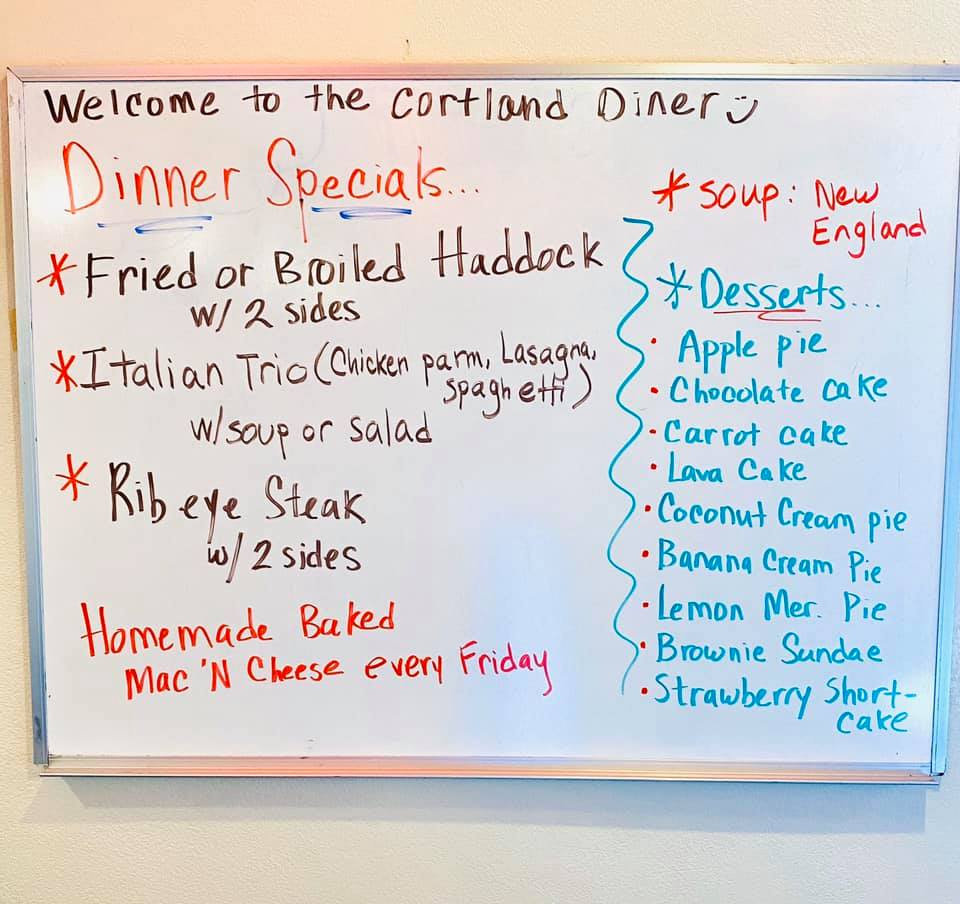 Welcome to the Cortland Diner
Dinner Specials...
* Fried or Broiled Haddock
w/ 2 sides
* Italian Trio (Chicken parm, Lasagna,
spaghetti)
w/soup or salad
* Rib eye Steak
w/ 2 sides
Homemade Baked
Mac 'N Cheese every Friday
* Soup: New
England
* Desserts...
• Apple pie
• Chocolate cake
• Carrot cake
• Lava Cake
• Coconut Cream pie
• Banana Cream Pie
• Lemon Mer. Pie
• Brownie Sundae
• Strawberry Short-
cake